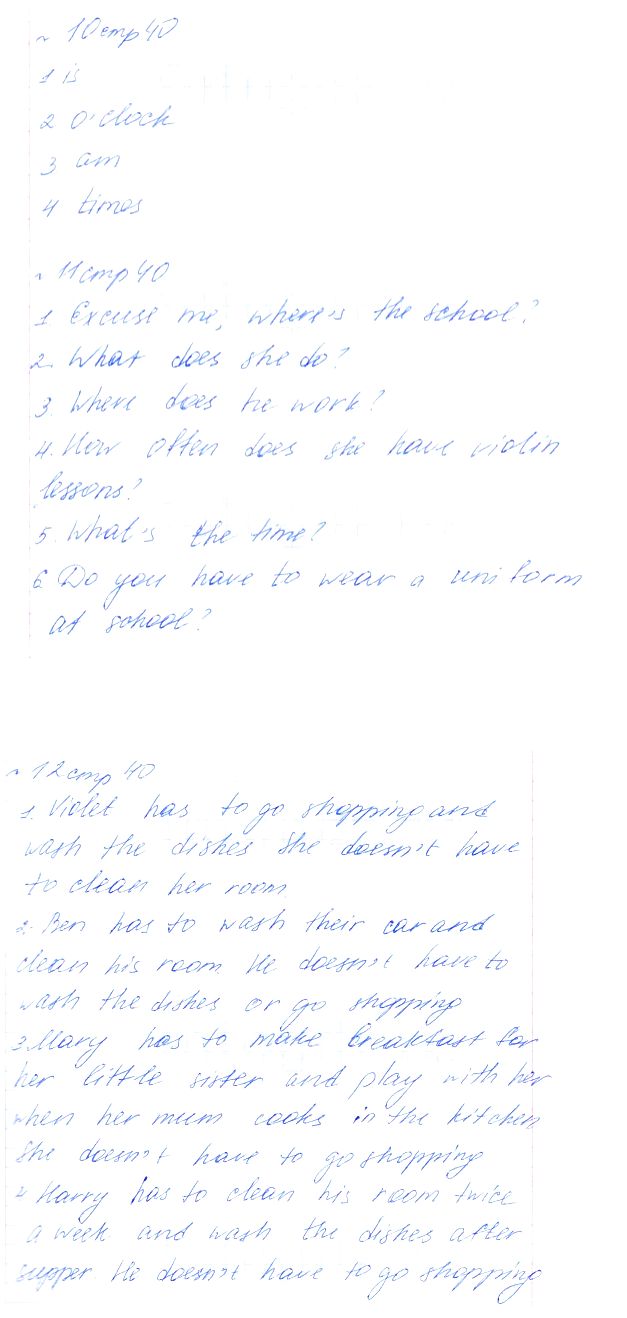 ~ 10 стр 40
1 is
2 o'clock
3 am
4 times
~ 11 стр 40
1 Excuse me, where's the school?
2. What does she do?
3. Where does he work?
4. How often does she have violin
lessons?
5. What's the time?
6. Do you have to wear a uniform
at school?
~ 12 стр 40
1. Violet has to go shopping and
wash the dishes She doesn't have
to clean her room
2. Ben has to wash their car and
clean his room He doesn't have to
wash the dishes or go shopping
3. Mary has to make breakfast for
her little sister and play with her
when her mum cooks in the kitchen
She doesn't have to go shopping
4 Harry has to clean his room twice
a week and wash the dishes after
supper He doesn't have to go shopping